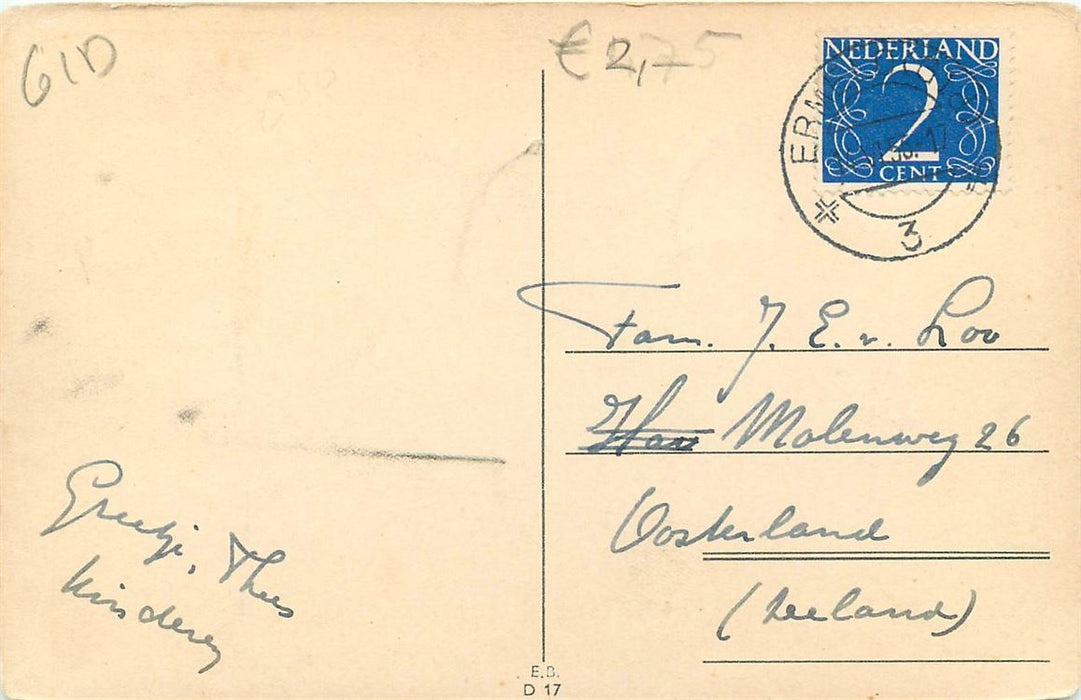 61D
€ 2,75
NEDERLAND
2
CENT
3
Fam. J. E. v. Loo
Molenweg 26
Oosterland
(Zeeland)
Greetje, Thees
kinderen
E.B.
D 17